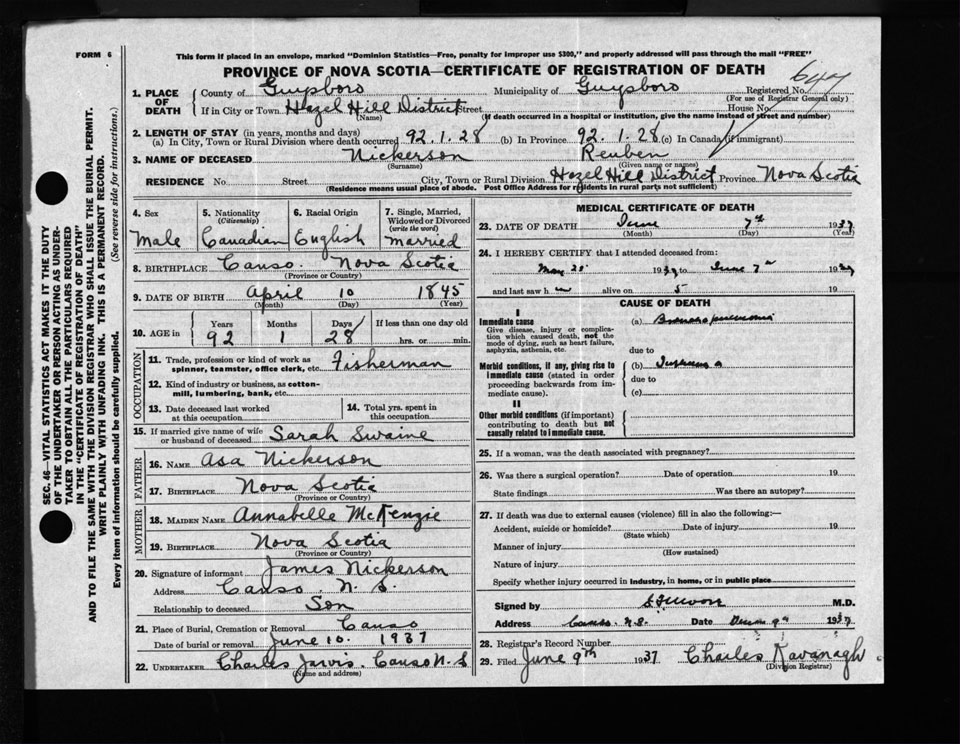 FORM 6
This form if placed in an envelope, marked "Dominion Statistics—Free, penalty for improper use $300," and properly addressed will pass through the mail "FREE"
PROVINCE OF NOVA SCOTIA—CERTIFICATE OF REGISTRATION OF DEATH
1. PLACE OF DEATH
County of Guysboro Municipality of Guysboro Registered No.
(For use of Registrar General only)
If in City or Town Hazel Hill District Street House No.
(Name) (If death occurred in a hospital or institution, give the name instead of street and number)
2. LENGTH OF STAY (in years, months and days)
(a) In City, Town or Rural Division where death occurred 92.1.28 (b) In Province 92.1.28 (c) In Canada (if immigrant)
3. NAME OF DECEASED Nickerson Reuben
(Surname) (Given name or names)
RESIDENCE No. Street City, Town or Rural Division Hazel Hill District Province Nova Scotia
(Residence means usual place of abode. Post Office Address for residents in rural parts not sufficient)
4. Sex Male
5. Nationality (Citizenship) Canadian
6. Racial Origin English
7. Single, Married, Widowed or Divorced (write the word) married
8. BIRTHPLACE Canso. Nova Scotia
(Province or Country)
9. DATE OF BIRTH April 10 1845
(Month) (Day) (Year)
10. AGE in Years 92 Months 1 Days 28 If less than one day old hrs. or min.
OCCUPATION
11. Trade, profession or kind of work as spinner, teamster, office clerk, etc. Fisherman
12. Kind of industry or business, as cotton-mill, lumbering, bank, etc.
13. Date deceased last worked at this occupation
14. Total yrs. spent in this occupation
15. If married give name of wife or husband of deceased Sarah Swaine
FATHER
16. NAME Asa Nickerson
17. BIRTHPLACE Nova Scotia
(Province or Country)
MOTHER
18. MAIDEN NAME Annabelle McKenzie
19. BIRTHPLACE Nova Scotia
(Province or Country)
20. Signature of informant James Nickerson
Address Canso. N. S.
Relationship to deceased Son
21. Place of Burial, Cremation or Removal Canso
Date of burial or removal June 10. 1937
22. UNDERTAKER Charles Jarvis. Canso N. S
(Name and address)
MEDICAL CERTIFICATE OF DEATH
23. DATE OF DEATH June 7th 1937
(Month) (Day) (Year)
24. I HEREBY CERTIFY that I attended deceased from:
May 1937 to June 7th 1937
and last saw h alive on 19
CAUSE OF DEATH
I
Immediate cause (a)
Give disease, injury or complication which caused death, not the mode of dying, such as heart failure, asphyxia, asthenia, etc.
due to
Morbid conditions, if any, giving rise to immediate cause (stated in order proceeding backwards from immediate cause). (b)
due to
(c)
II
Other morbid conditions (if important) contributing to death but not causally related to immediate cause.
25. If a woman, was the death associated with pregnancy?
26. Was there a surgical operation? Date of operation 19
State findings Was there an autopsy?
27. If death was due to external causes (violence) fill in also the following:—
Accident, suicide or homicide? Date of injury 19
(State which)
Manner of injury
(How sustained)
Nature of injury
Specify whether injury occurred in industry, in home, or in public place
Signed by M.D.
Address Canso. N.S. Date June 9th 1937
28. Registrar's Record Number
29. Filed June 9th 1937 Charles Kavanagh
(Division Registrar)
SEC. 46—VITAL STATISTICS ACT MAKES IT THE DUTY
OF THE UNDERTAKER OR PERSON ACTING AS UNDER-
TAKER TO OBTAIN ALL THE PARTICULARS REQUIRED
IN THE "CERTIFICATE OF REGISTRATION OF DEATH"
AND TO FILE THE SAME WITH THE DIVISION REGISTRAR WHO SHALL ISSUE THE BURIAL PERMIT.
WRITE PLAINLY WITH UNFADING INK. THIS IS A PERMANENT RECORD.
Every item of information should be carefully supplied. (See reverse side for instructions.)